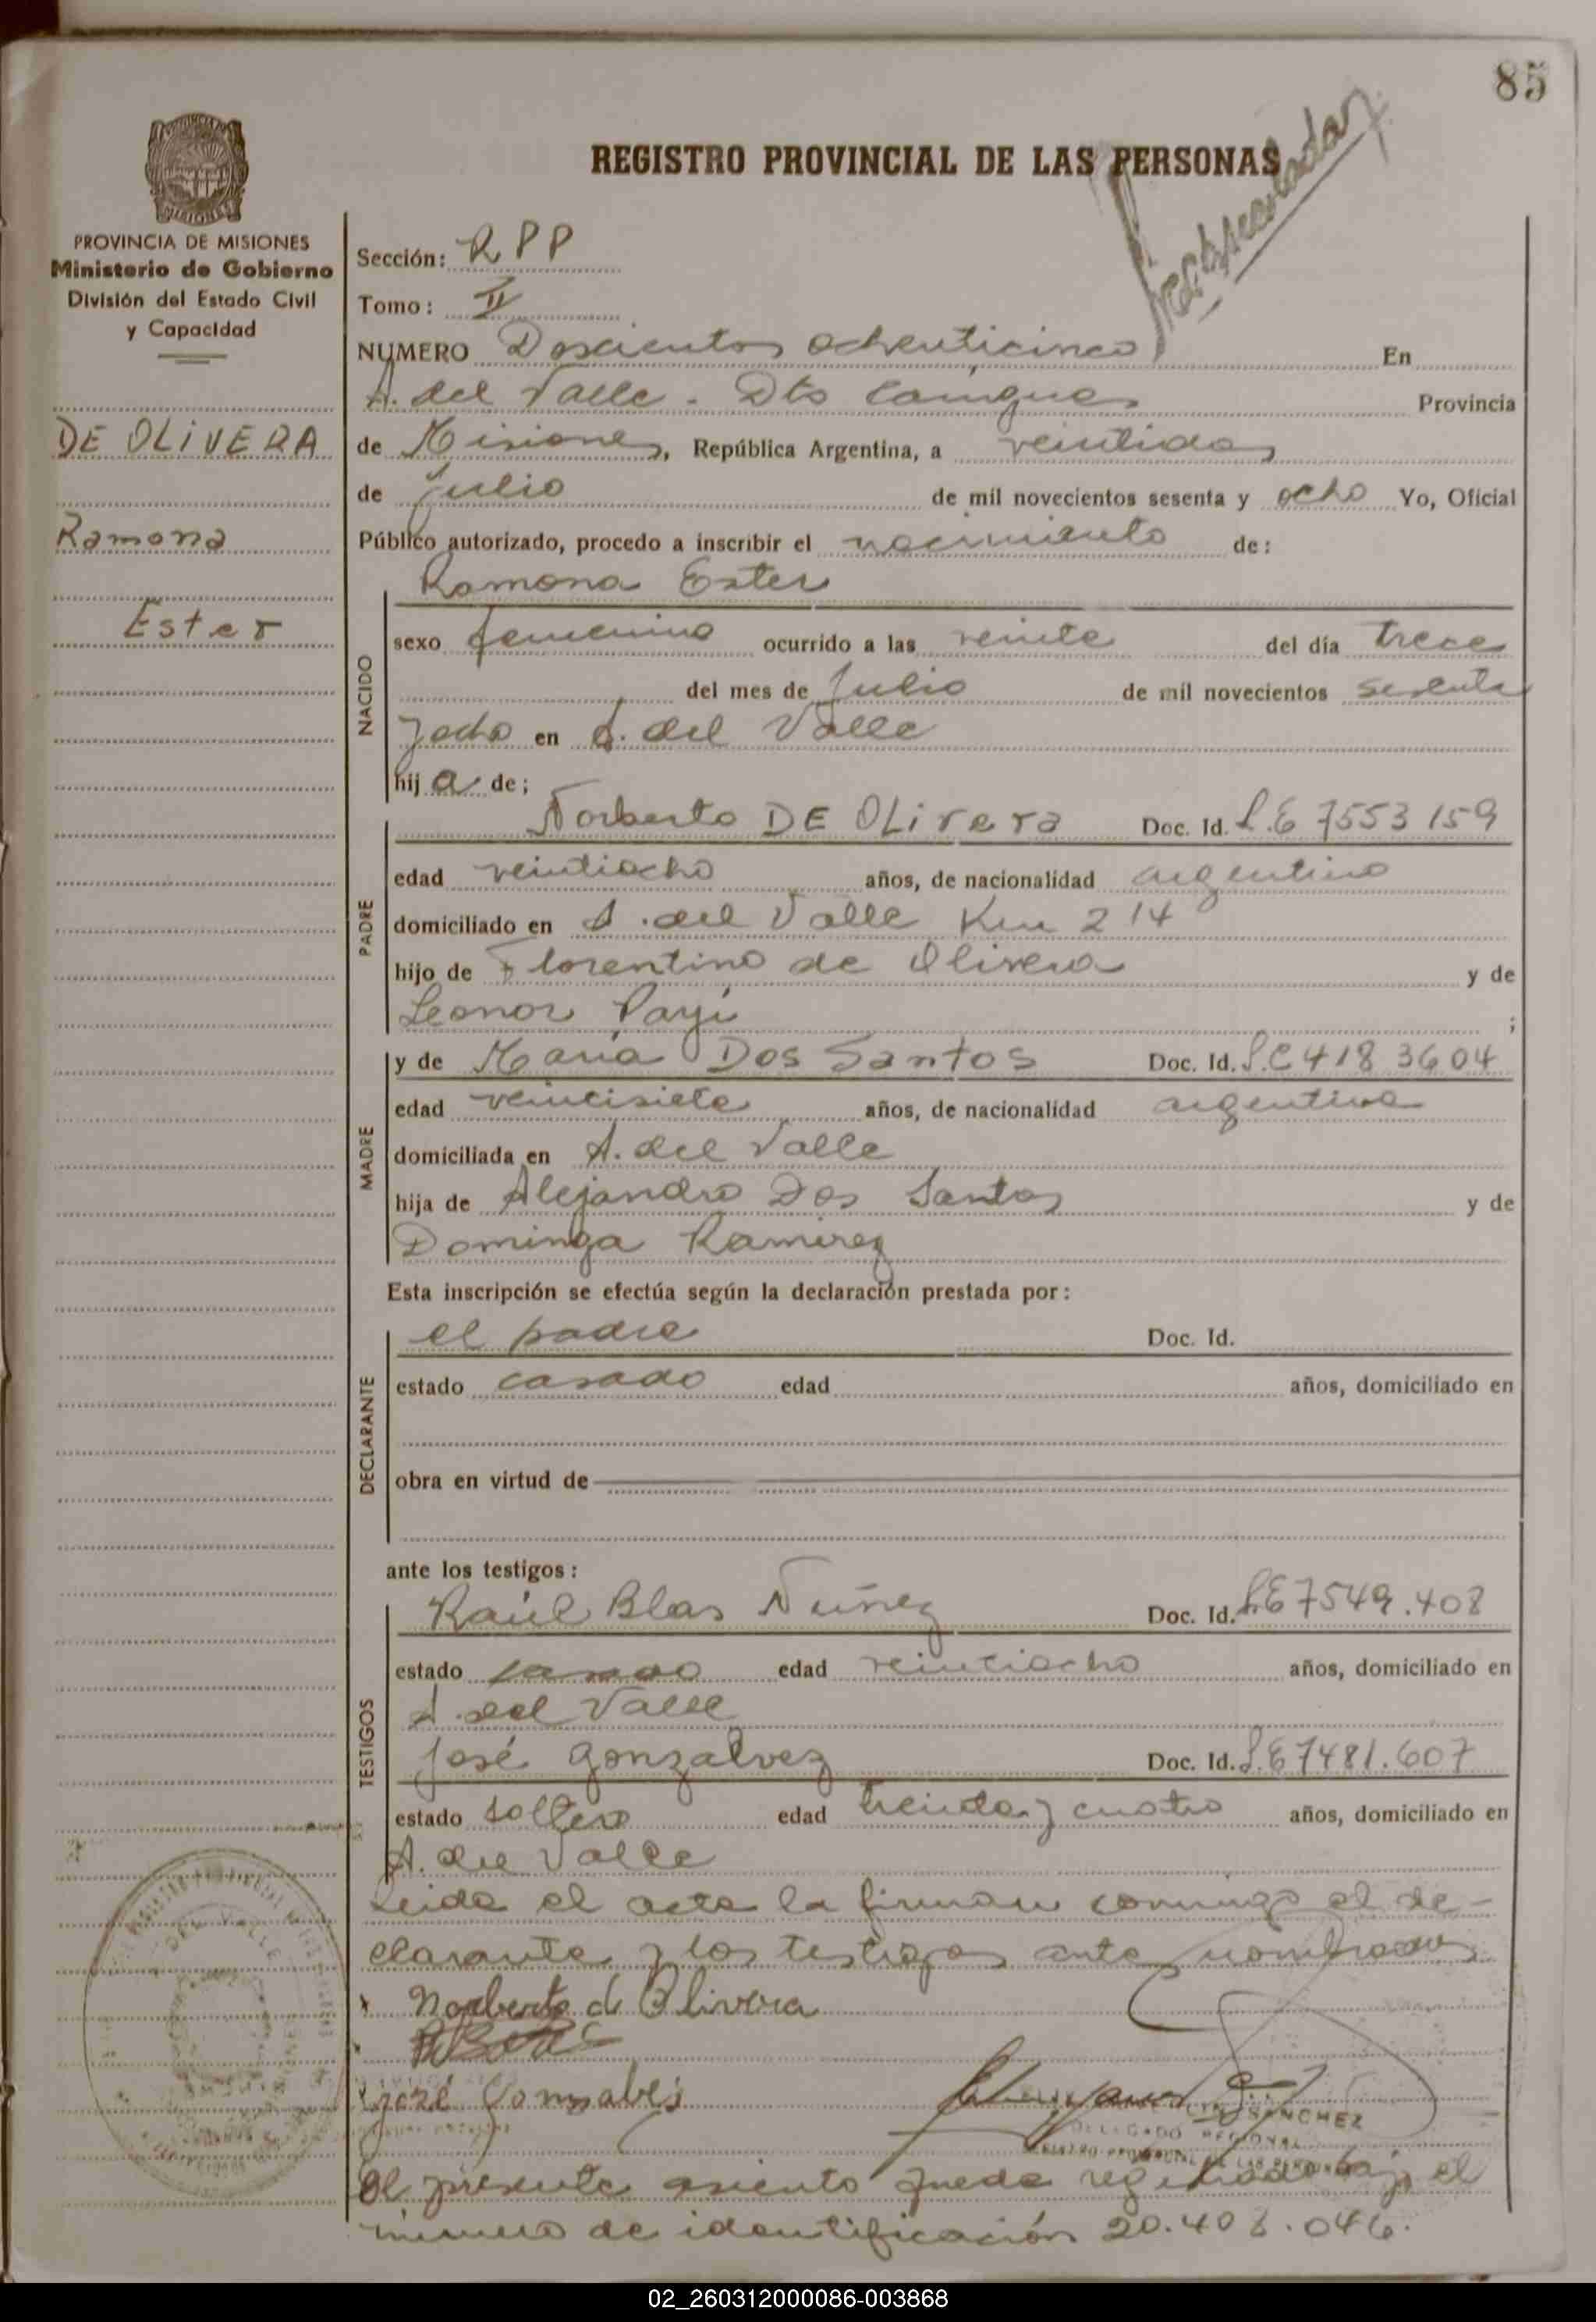 85
REGISTRO PROVINCIAL DE LAS PERSONAS
PROVINCIA DE MISIONES
Ministerio de Gobierno
División del Estado Civil
y Capacidad
DE OLIVERA
Ramona
Ester
Sección: RPP
Tomo: II
NUMERO Doscientos ochenticinco En
A. del Valle - Dto Cainguas Provincia
de Misiones, República Argentina, a veintidos
de julio de mil novecientos sesenta y ocho Yo, Oficial
Público autorizado, procedo a inscribir el nacimiento de:
Ramona Ester
NACIDO
sexo femenino ocurrido a las veinte del día trece
del mes de julio de mil novecientos sesenta
y ocho en A. del Valle
hij a de;
PADRE
Norberto DE OLivera Doc. Id. L.E 7553159
edad veintiocho años, de nacionalidad argentino
domiciliado en A. del Valle Km 214
hijo de Florentino de Olivera y de
Leonor Payi ;
MADRE
y de María Dos Santos Doc. Id. L.C 4183604
edad veintisiete años, de nacionalidad argentina
domiciliada en A. del Valle
hija de Alejandro Dos Santos y de
Dominga Ramirez
Esta inscripción se efectúa según la declaración prestada por:
DECLARANTE
el padre Doc. Id.
estado casado edad años, domiciliado en
obra en virtud de
ante los testigos:
TESTIGOS
Raúl Blas Nuñez Doc. Id. L.E 7549.408
estado casado edad veintiocho años, domiciliado en
A. del Valle
José Gonzalvez Doc. Id. L.E 7481.607
estado soltero edad treinta y cuatro años, domiciliado en
A. del Valle
Leida el acta la firman conmigo el de-
clarante y los testigos ante nombrados
Norberto de Olivera
José Gonzalvez
SANCHEZ
DELEGADO REGIONAL
REGISTRO PROVINCIAL DE LAS PERSONAS
DEL VALLE
El presente asiento queda registrado bajo el
número de identificación 20.408.046.
02_260312000086-003868